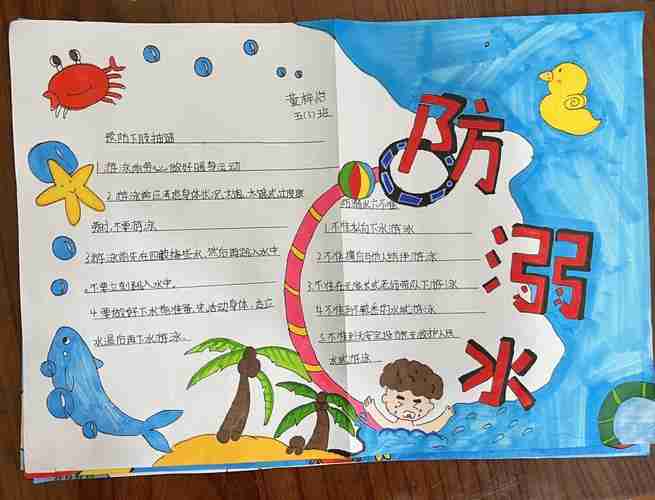 董梓
五(1)班
预防下肢抽筋
1.游泳前务必做好暖身运动
2.游泳前应考虑身体状况,太饱、太饿或过度疲
劳时,不要游泳
3.游泳前先在四肢撩些水,然后再跳入水中
。不要立刻跳入水中。
4.要做好下水前准备,先活动身体,
水温后再下水游泳。
防溺水六不准
1.不准私自下水游泳
2.不准擅自与他人结伴游泳
3.不准在无家长或老师带队下游泳
4.不准到不熟悉的水域游泳
5.不准到无安全设施无救护人员
水域游泳
防
溺
水